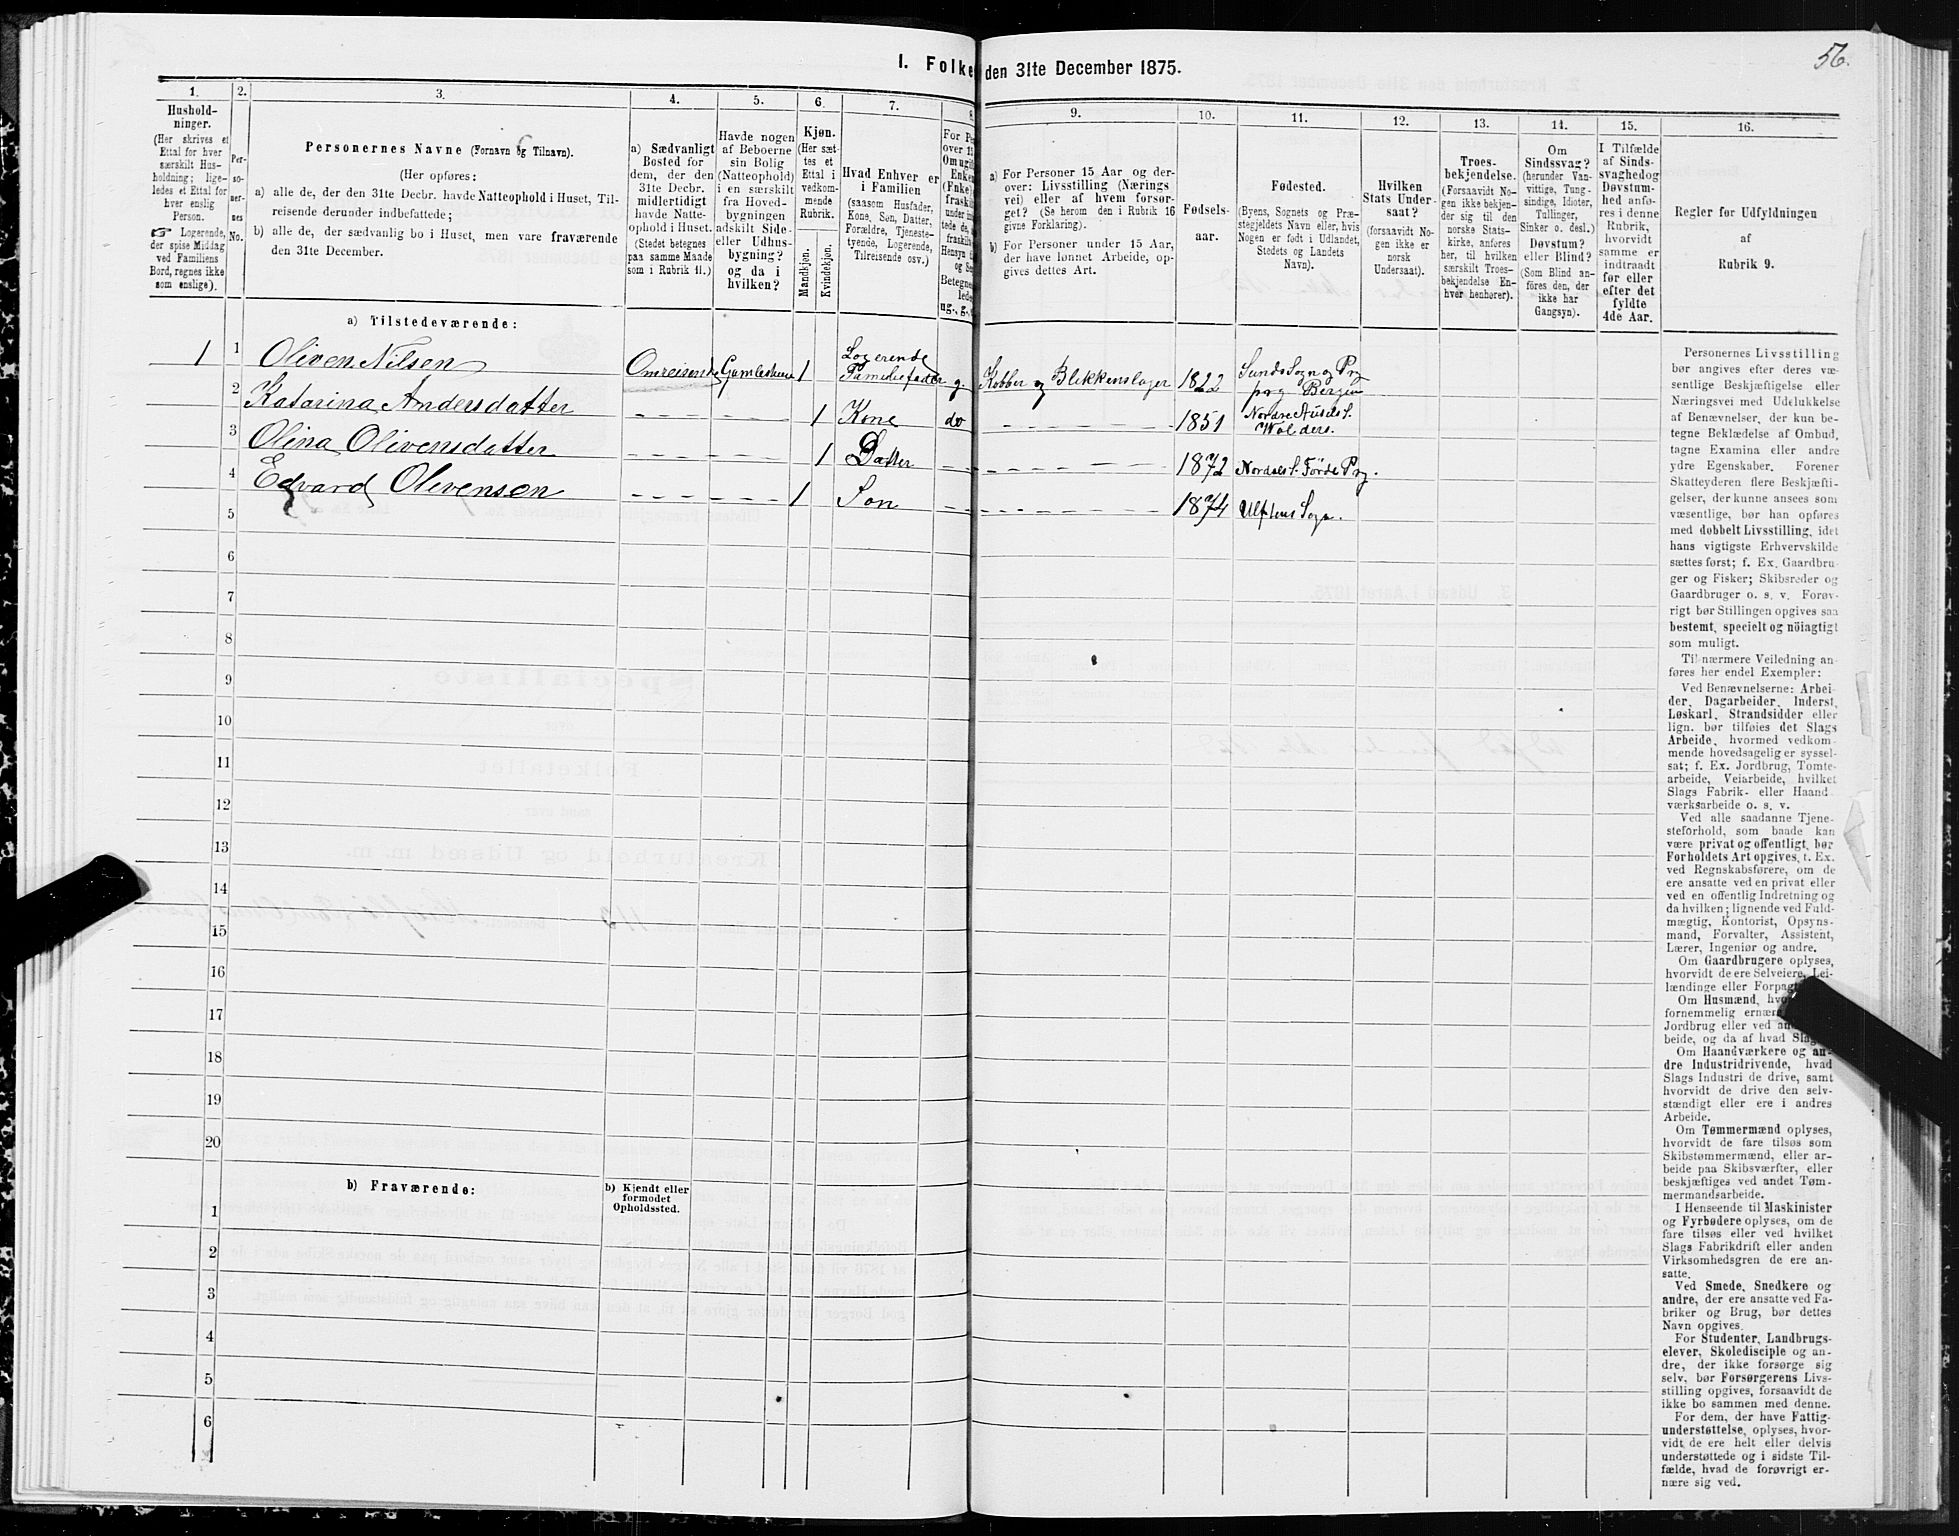 56.
I. Folke den 31te December 1875.
1. 2. 3. 4. 5. 6. 7. 8. 9. 10. 11. 12. 13. 14. 15. 16.
Hushold-
ninger.
(Her skrives et
Ettal for hver
særskilt Hus-
holdning; lige-
ledes et Ettal for
hver enslig
Person.
☞ Logerende,
der spise Middag
ved Familiens
Bord, regnes ikke
som enslige).
Per-
so-
ner-
nes
No.
Personernes Navne (Fornavn og Tilnavn).
(Her opføres:
a) alle de, der den 31te Decbr. havde Natteophold i Huset, Til-
reisende derunder indbefattede;
b) alle de, der sædvanlig bo i Huset, men vare fraværende
den 31te December.
a) Sædvanligt
Bosted for
dem, der den
31te Decbr.
midlertidigt
havde Natte-
ophold i Huset.
(Stedet betegnes
paa samme Maade
som i Rubrik 11.)
Havde nogen
af Beboerne
sin Bolig
(Natteophold)
i en særskilt
fra Hoved-
bygningen
adskilt Side-
eller Udhus-
bygning?
og da i
hvilken?
Kjøn.
(Her sæt-
tes et
Ettal i
vedkom-
mende
Rubrik.
Mandkjøn.
Kvindekjøn.
Hvad Enhver er
i Familien
(saasom Husfader,
Kone, Søn, Datter,
Forældre, Tjeneste-
tyende, Logerende,
Tilreisende osv.)
For Pe
over 1
Om ugi
Enke
(Enke)
fraski
under in
tede de,
fraskil
Hensyn t
og Se
Betegne
lede
ug., g.,
a) For Personer 15 Aar og der-
over: Livsstilling (Nærings
vei) eller af hvem forsør-
get? (Se herom den i Rubrik 16
givne Forklaring).
b) For Personer under 15 Aar,
der have lønnet Arbeide, op-
gives dettes Art.
Fødsels-
aar.
Fødested.
(Byens, Sognets og Præ-
stegjeldets Navn eller, hvis
Nogen er født i Udlandet,
Stedets og Landets
Navn).
Hvilken
Stats Under-
saat?
(forsaavidt No-
gen ikke er
norsk
Undersaat).
Troes-
bekjendelse.
(Forsaavidt No-
gen ikke bekjen-
der sig til den
norske Stats-
kirke, anføres
her, til hvilken
særskilt Troes-
bekjendelse En-
hver henhører).
Om
Sindssvag?
(herunder Van-
vittige, Tung-
sindige, Idioter,
Tullinger,
Sinker o. desl.)
Døvstum?
eller Blind?
(Som Blind an-
føres den, der
ikke har
Gangsyn).
I Tilfælde
af Sinds-
svaghed og
Døvstum-
hed anfø-
res i denne
Rubrik,
hvorvidt
samme er
indtraadt
før eller
efter det
fyldte
4de Aar.
Regler for Udfyldningen
af
Rubrik 9.
a) Tilstedeværende:
1 1 Oliven Nilsen Omreisende Gamlestuen 1 Logerende Familiefader g. Kobber og Blikkenslager 1822 Sunds Sogn og Prg prg Bergen
2 Katarina Andersdatter 1 Kone do 1851 Nordre Ausdals S. Walders.
3 Olina Olivensdatter 1 Datter 1872 Nordals S. Førde Prg.
4 Edvard Olivensen 1 Søn 1874 Sogn.
5
6
7
8
9
10
11
12
13
14
15
16
17
18
19
20
b) Fraværende:
b) Kjendt eller
formodet
Opholdssted.
1
2
3
4
5
6
Personernes Livsstilling
bør angives efter deres væ-
sentlige Beskjæftigelse eller
Næringsvei med Udelukkelse
af Benævnelser, der kun be-
tegne Beklædelse af Ombud,
tagne Examina eller andre
ydre Egenskaber. Forener
Skatteyderen flere Beskjæfti-
gelser, der kunne ansees som
væsentlige, bør han opføres
med dobbelt Livsstilling, idet
hans vigtigste Erhvervskilde
sættes først; f. Ex. Gaardbru-
ger og Fisker; Skibsreder og
Gaardbruger o. s. v. Forøv-
rigt bør Stillingen opgives saa
bestemt, specielt og nöiagtigt
som muligt.
Til nærmere Veiledning an-
føres her endel Exempler:
Ved Benævnelserne: Arbei-
der, Dagarbeider, Inderst,
Løskarl, Strandsidder eller
lign. bør tilføies det Slags
Arbeide, hvormed vedkom-
mende hovedsagelig er syssel-
sat; f. Ex. Jordbrug, Tomte-
arbeide, Veiarbeide, hvilket
Slags Fabrik- eller Haand-
værksarbeide o. s. v.
Ved alle saadanne Tjene-
steforhold, som baade kan
være privat og offentligt, bør
Forholdets Art opgives, t. Ex.
ved Regnskabsførere, om de
ere ansatte ved en privat eller
ved en offentlig Indretning og
da hvilken; lignende ved Fuld-
mægtig, Kontorist, Opsyns-
mand, Forvalter, Assistent,
Lærer, Ingeniør og andre.
Om Gaardbrugere oplyses,
hvorvidt de ere Selveiere, Lei-
lændinge eller Forpagt
Om Husmænd, hvo
fornemmelig ernær
Jordbrug eller ved an
beide, og da af hvad Slag
Om Haandværkere og an-
dre Industridrivende, hvad
Slags Industri de drive, samt
hvorvidt de drive den selv-
stændigt eller ere i andres
Arbeide.
Om Tømmermænd oplyses,
hvorvidt de fare tilsøs som
Skibstømmermænd, eller ar-
beide paa Skibsværfter, eller
beskjæftiges ved andet Tøm-
mermandsarbeide.
I Henseende til Maskinister
og Fyrbødere oplyses, om de
fare tilsøs eller ved hvilket
Slags Fabrikdrift eller anden
Virksomhedsgren de ere an-
satte.
Ved Smede, Snedkere og
andre, der ere ansatte ved Fa-
briker og Brug, bør dettes
Navn opgives.
For Studenter, Landbrugs-
elever, Skoledisciple og an-
dre, der ikke forsørge sig
selv, bør Forsørgerens Livs-
stilling opgives, forsaavidt de
ikke bo sammen med denne.
For dem, der have Fattig-
understøttelse, oplyses, hvor-
vidt de ere helt eller delvis
understøttede og i sidste Til-
fælde, hvad de forøvrigt er-
nære sig ved.